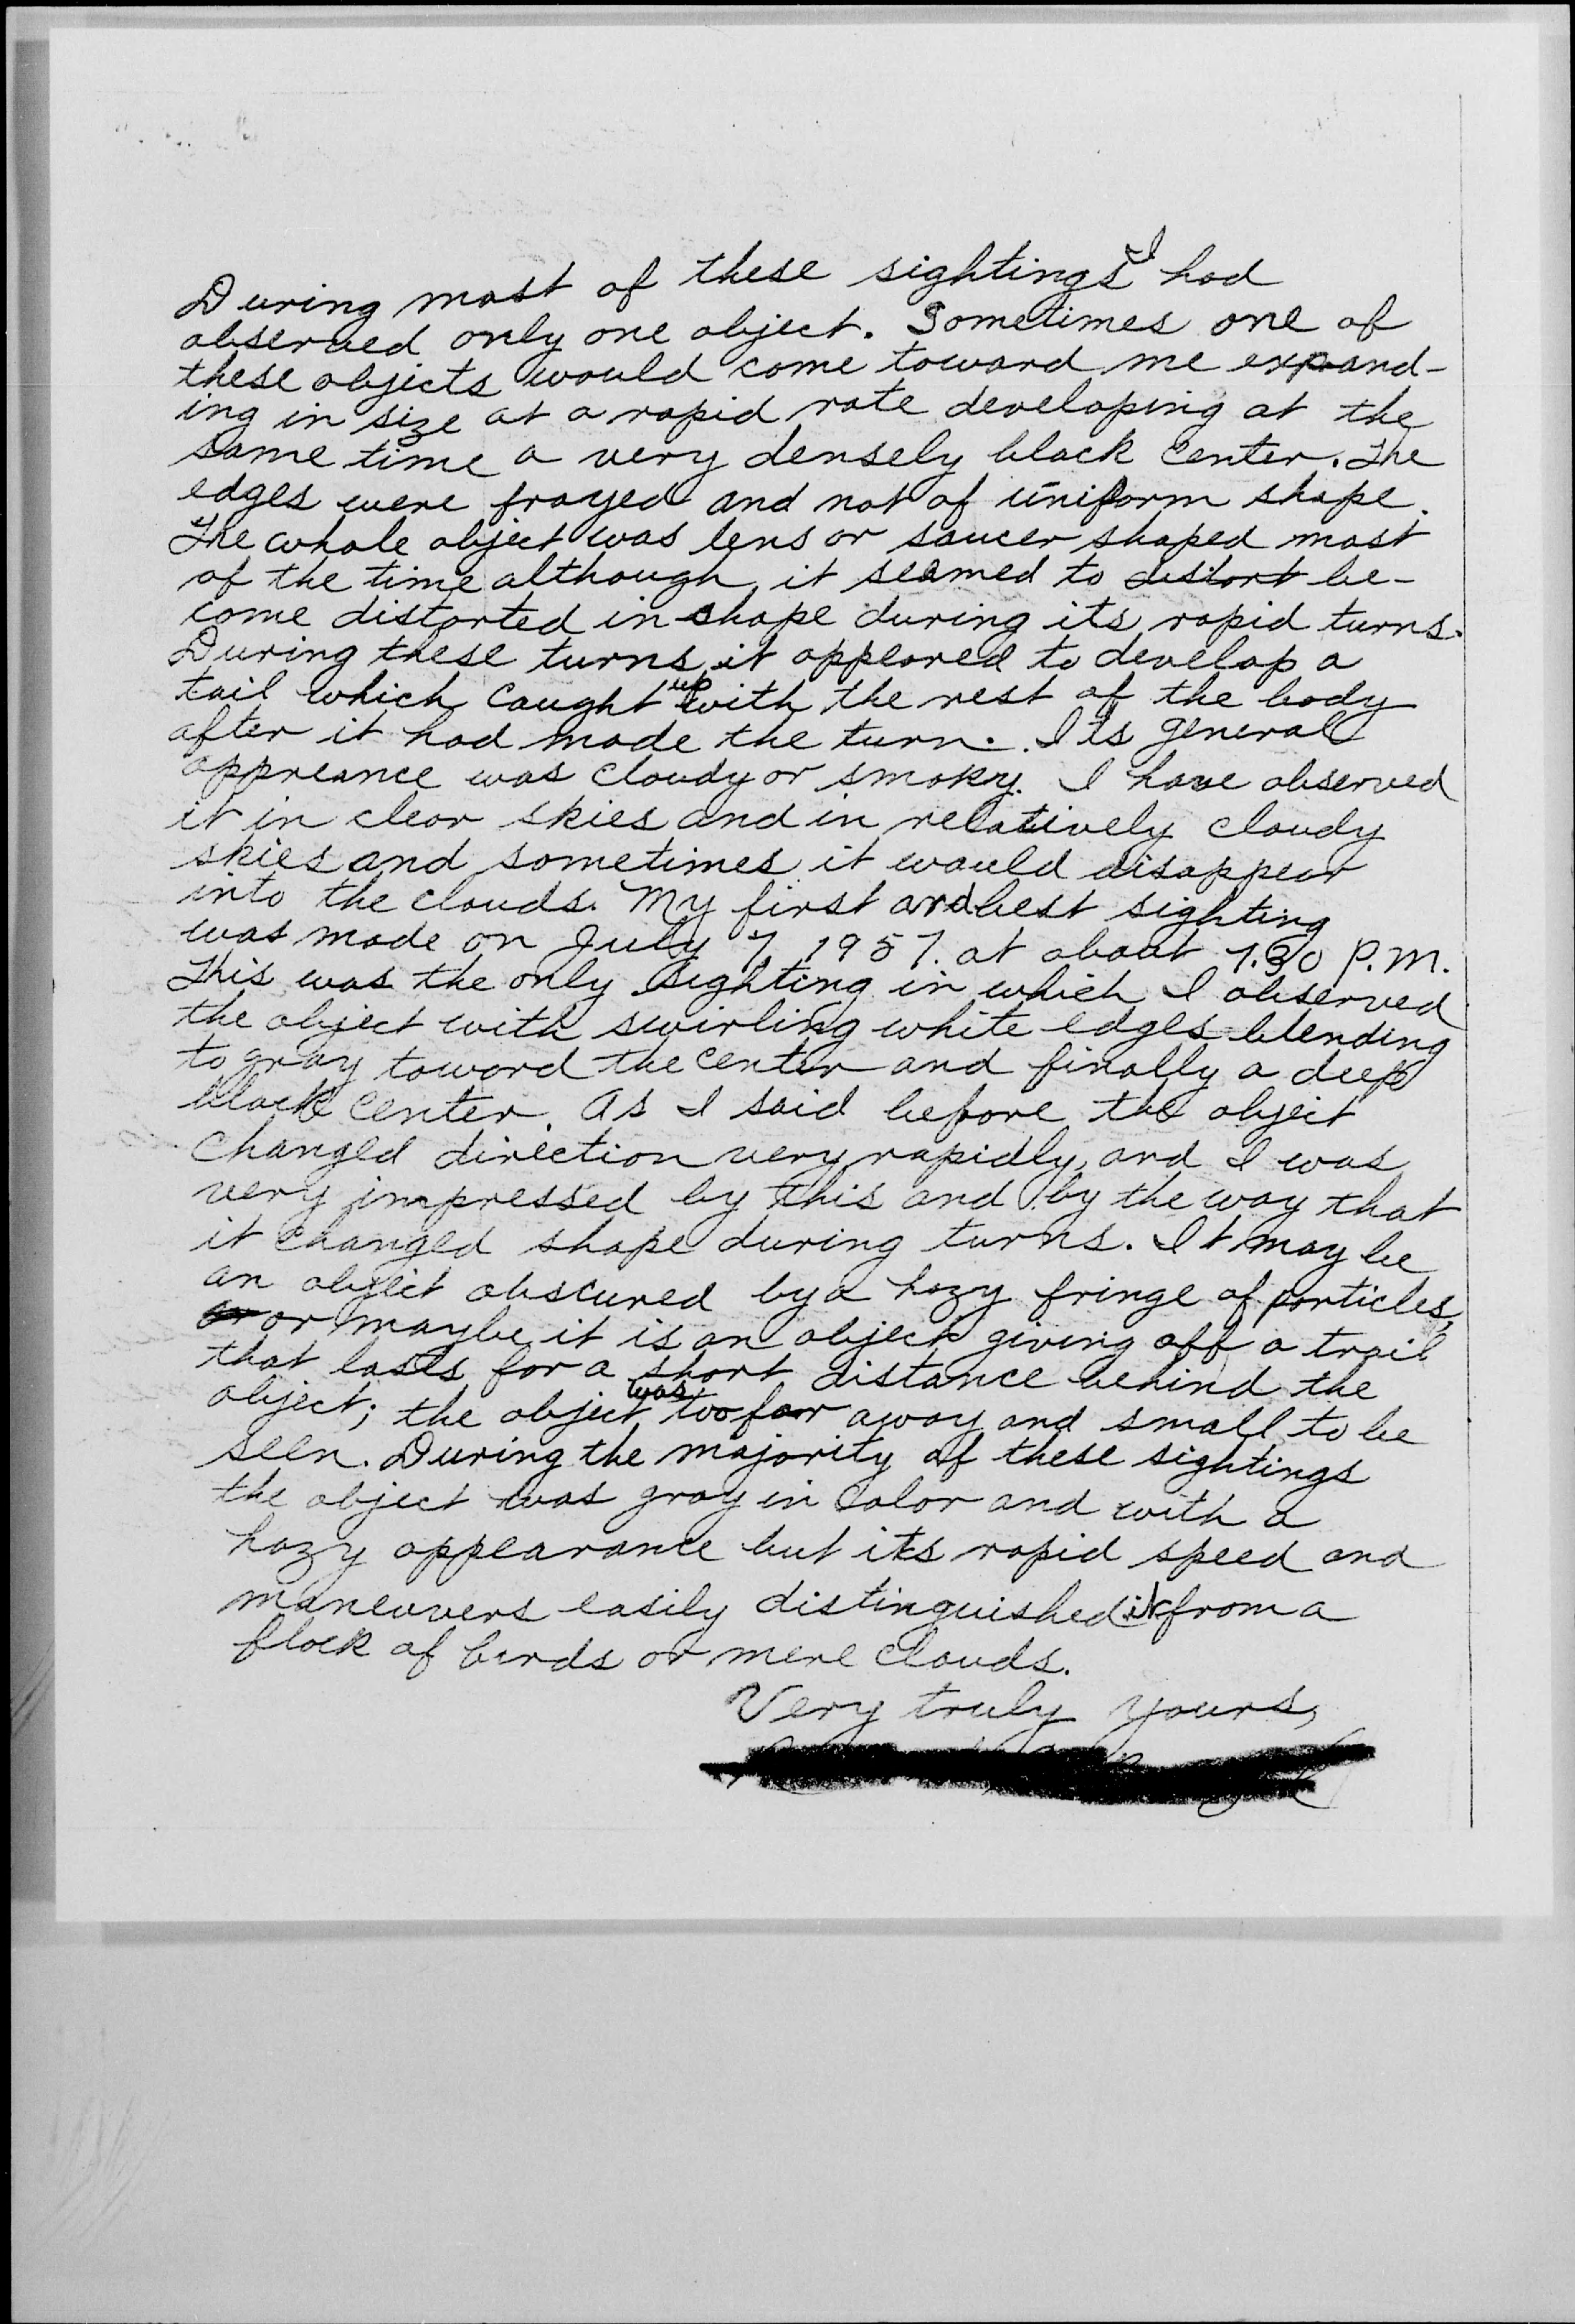 During most of these sightings I had
observed only one object. Sometimes one of
these objects would come toward me expand-
ing in size at a rapid rate developing at the
same time a very densely black center. The
edges were frayed and not of uniform shape.
The whole object was lens or saucer shaped most
of the time although it seemed to distort be-
come distorted in shape during its rapid turns.
During these turns it appeared to develop a
tail which caught up with the rest of the body
after it had made the turn. Its general
appreance was cloudy or smoky. I have observed
it in clear skies and in relatively cloudy
skies and sometimes it would disappear
into the clouds. My first and best sighting
was made on July 7, 1957. at about 7.30 P.M.
This was the only sighting in which I observed
the object with swirling white edges blending
to gray toward the center and finally a deep
black center. As I said before the object
changed direction very rapidly, and I was
very impressed by this and by the way that
it changed shape during turns. It may be
an object obscured by a hazy fringe of particles,
or or maybe it is an object giving off a trail
that lasts for a short distance behind the
object; the object was too far away and small to be
seen. During the majority of these sightings
the object was gray in color and with a
hazy appearance but its rapid speed and
maneuvers easily distinguished it from a
flock of birds or mere clouds.
Very truly yours,